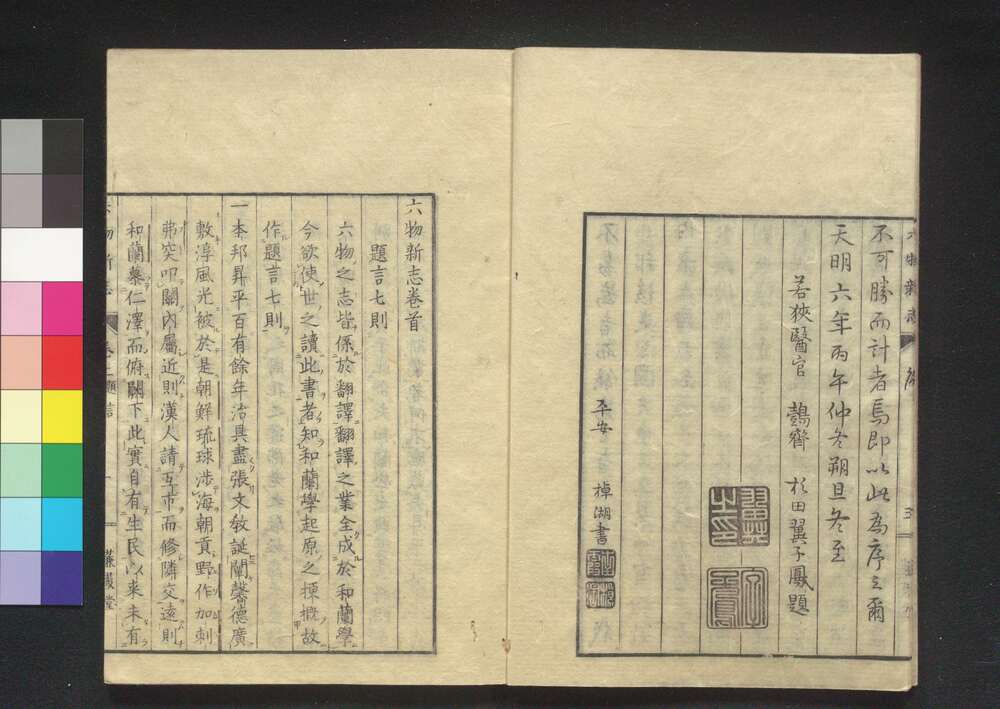 不可勝而計者焉即以此為序云爾
天明六年丙午仲冬朔旦冬至
若狹醫官 鷧齋 杉田翼子鳳題
翼之印
字子鳳
平安 棹湖書
六物新志卷首
題言七則
六物之志皆係於翻譯翻譯之業全成於和蘭學
今欲使世之讀此書者知和蘭學起原之梗概故
作題言七則
一本邦昇平百有餘年治具盡張文敎誕闡馨德廣
敷淳風光被於是朝鮮琉球涉海朝貢野作加刺
弗突叩關內屬近則漢人請互市而修隣交遠則
和蘭慕仁澤而俯闕下此實自有生民以來未有